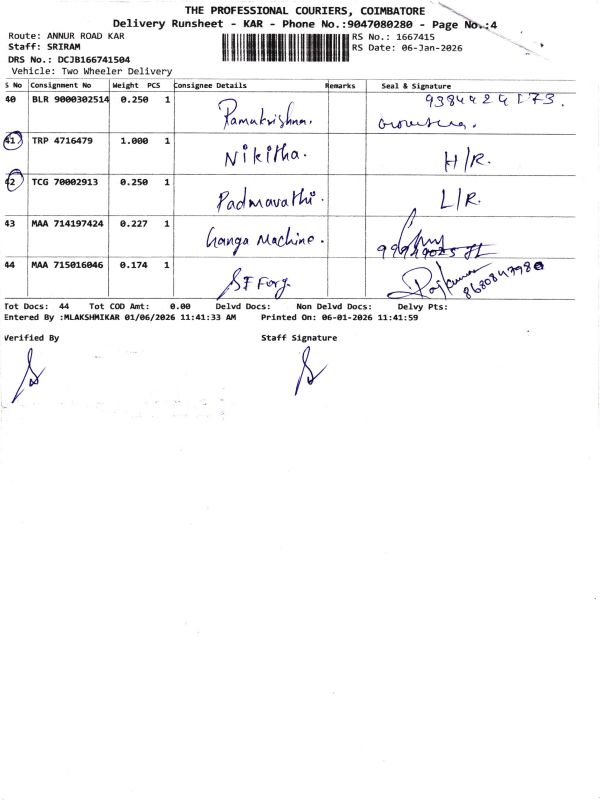 THE PROFESSIONAL COURIERS, COIMBATORE
Delivery Runsheet - KAR - Phone No.:9047080280 - Page No.:4
Route: ANNUR ROAD KAR
RS No.: 1667415
Staff: SRIRAM
RS Date: 06-Jan-2026
DRS No.: DCJB166741504
Vehicle: Two Wheeler Delivery
S No Consignment No Weight PCS Consignee Details Remarks Seal & Signature
40 BLR 9000302514 0.250 1 Ramakrishna. 9384424173.
41 TRP 4716479 1.000 1 Nikitha. H/R.
42 TCG 70002913 0.250 1 Padmavathi. L/R.
43 MAA 714197424 0.227 1 Ganga Machine.
44 MAA 715016046 0.174 1 SF Forg. Rajkumar
Tot Docs: 44 Tot COD Amt: 0.00 Delvd Docs: Non Delvd Docs: Delvy Pts:
Entered By :MLAKSHMIKAR 01/06/2026 11:41:33 AM Printed On: 06-01-2026 11:41:59
Verified By Staff Signature